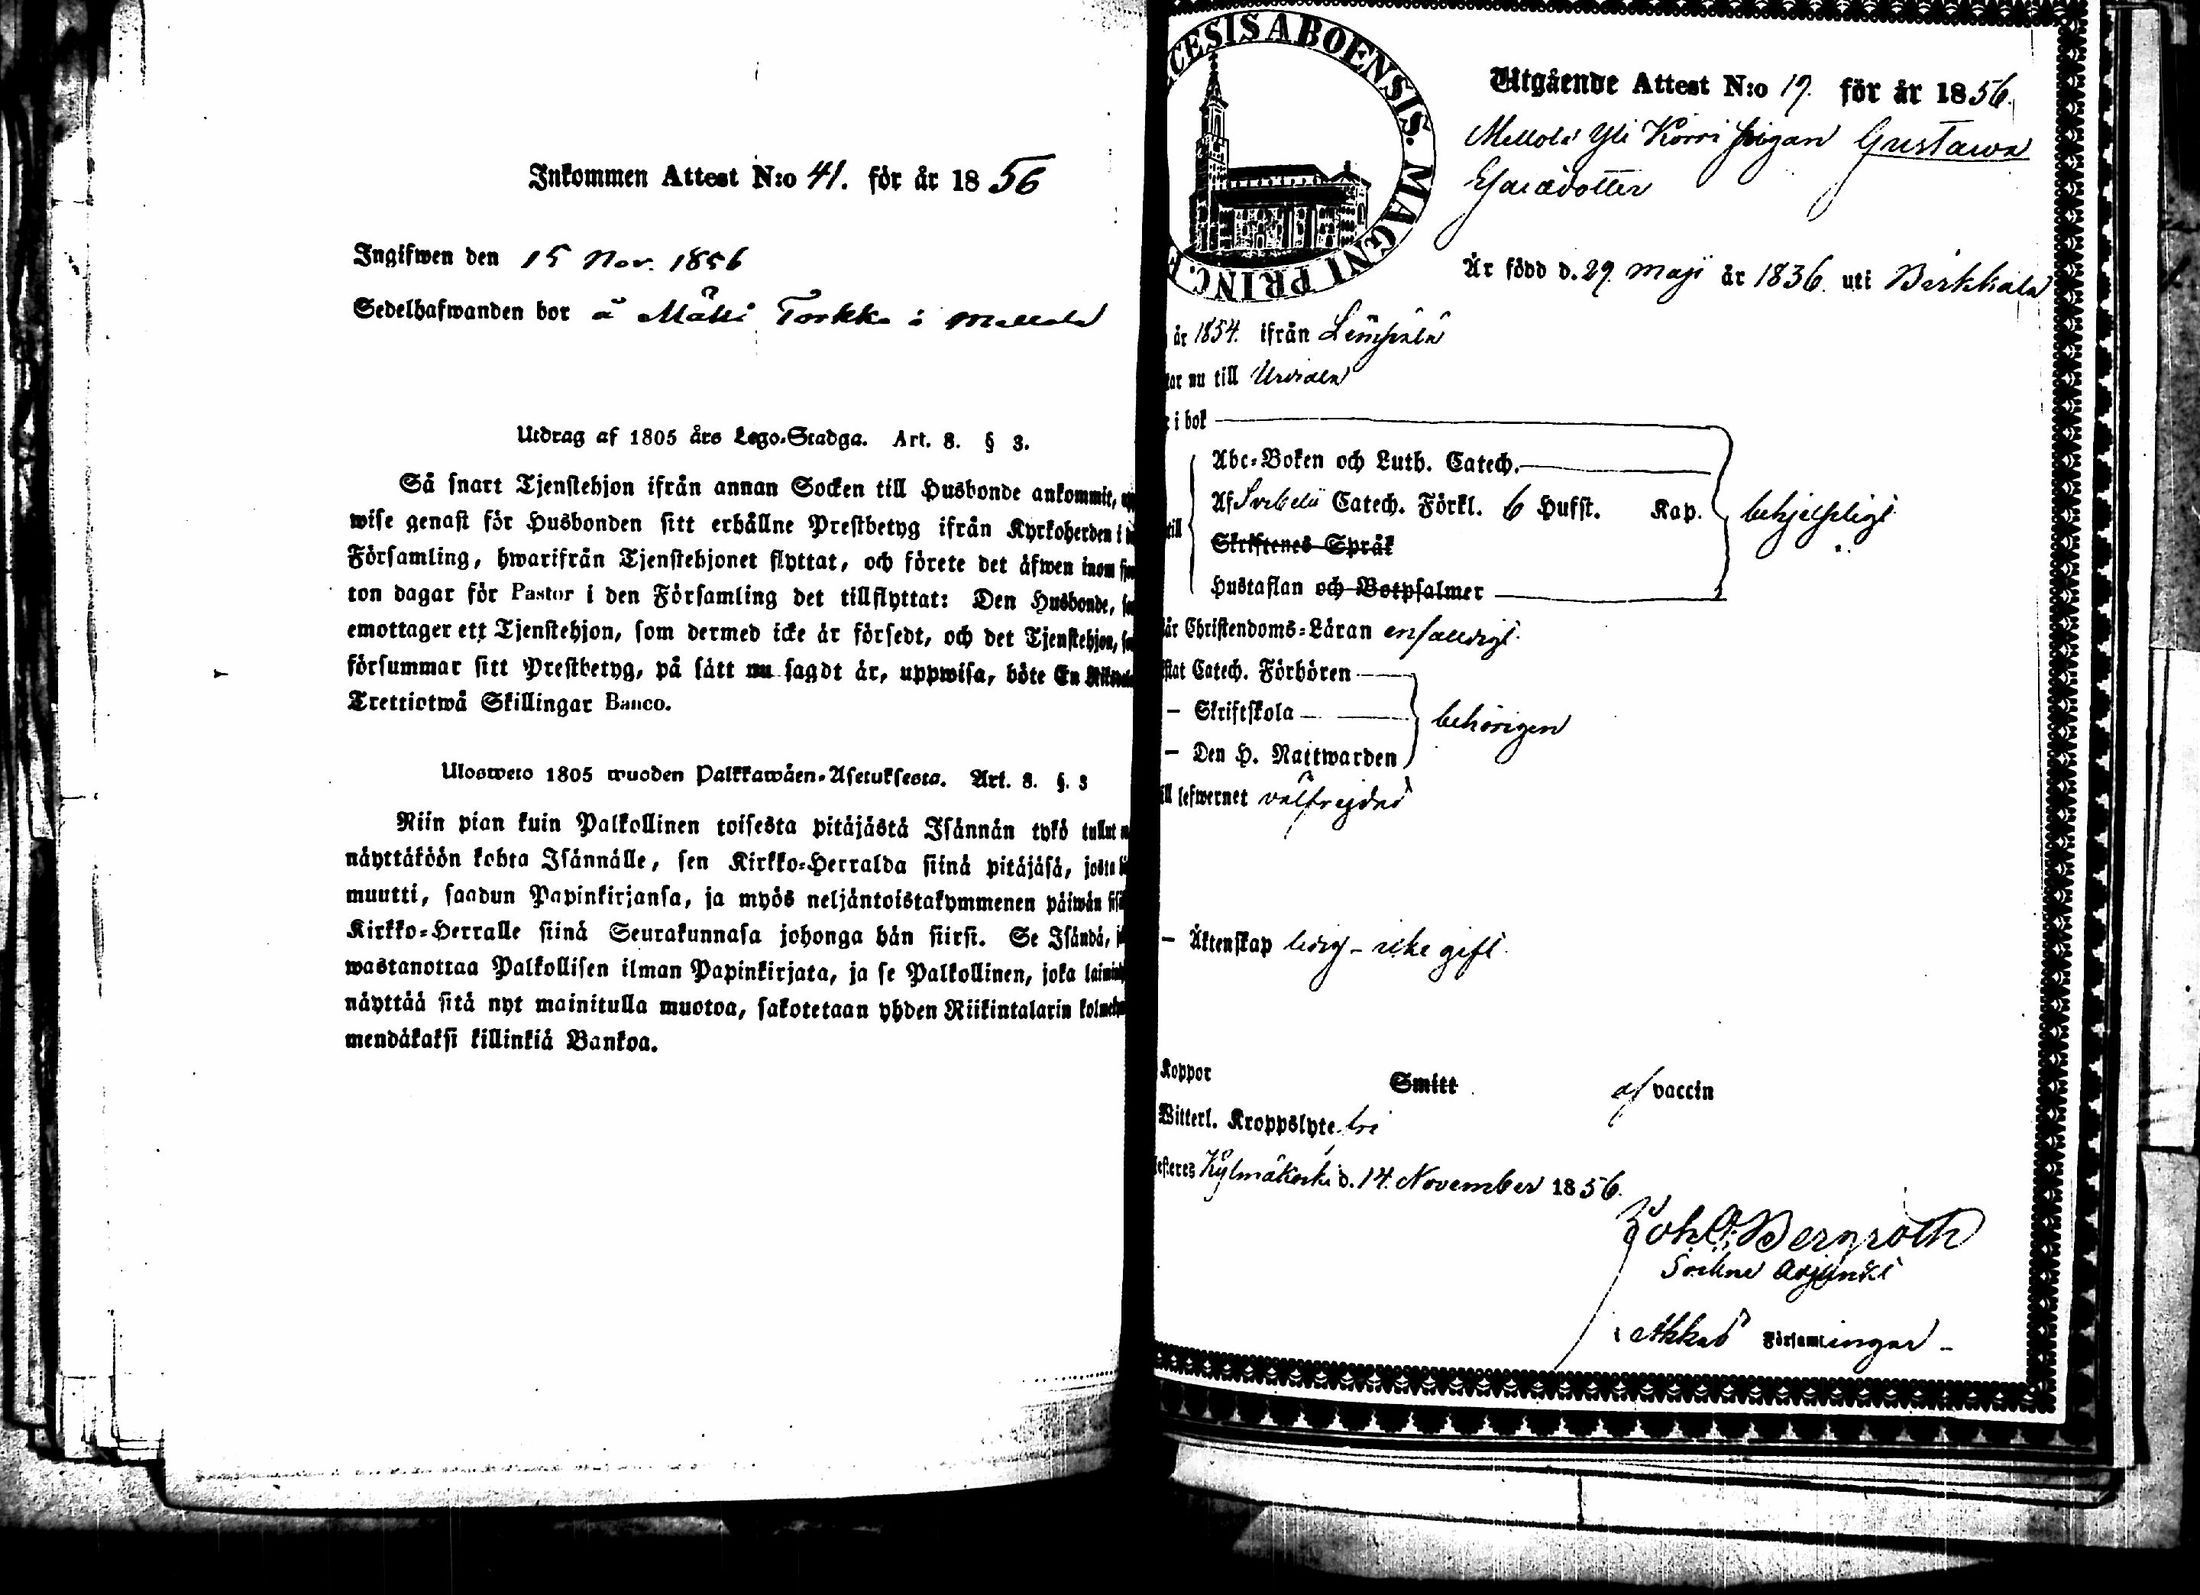 Inkommen Attest N:o 41. för år 1856
Ingifwen den 15 Nov. 1856
Sedelhafwanden bor å Mäki Torkko i Mellola
Utdrag af 1805 års Lego-Stadga. Art. 8. § 3.
Så snart Tjenstehjon ifrån annan Socken till Husbonde ankommit,
wise genast för Husbonden sitt erhållne Prestbetyg ifrån Kyrkoherden i
Församling, hwarifrån Tjenstehjonet flyttat, och förete det äfwen inom
ton dagar för Pastor i den Församling det tillflyttat: Den Husbonde,
emottager ett Tjenstehjon, som dermed icke är försedt, och det Tjenstehjon,
försummar sitt Prestbetyg, på sätt nu sagdt är, uppwisa, böte En
Trettiotwå Skillingar Banco.
Ulosweto 1805 wuoden Palkkawäen-Asetuksesta. Art. 8. §. 3
Niin pian kuin Palkollinen toisesta pitäjästä Isännän tykö tullut
näyttäköön kohta Isännälle, sen Kirkko-Herralda siinä pitäjäsä, josta
muutti, saadun Papinkirjansa, ja myös neljäntoistakymmenen päiwän
Kirkko-Herralle siinä Seurakunnasa johonga hän siirsi. Se Isändä,
wastanottaa Palkollisen ilman Papinkirjata, ja se Palkollinen, joka
näyttää sitä nyt mainitulla muotoa, sakotetaan yhden Riikintalarin
mendäkaksi killinkiä Bankoa.
CESIS ABOENSIS. MAGNI PRINC. F
Utgående Attest N:o 19. för år 1856.
Mellola Yli Korri pigan Gustawa
Esaiædotter
Är född d. 29 maji år 1836. uti Birkkala
år 1854. ifrån Lempälä
nu till Urdiala
i bok
Abc-Boken och Luth. Catech.
Af Svebelii Catech. Förkl. 6 Hufst. Kap. behjelpligt
till
Skriftenes Språk
Hustaflan och Botpsalmer
Christendoms-Läran enfaldigt
Catech. Förhören
– Skriftskola behörigen
– Den H. Nattwarden
lefwernet välfrejdad
– Äktenskap ledig – icke gift.
Koppor Smitt af vaccin
Witterl. Kroppslyte fri
Kylmäkoski d. 14. November 1856.
Joh. O. Bergroth
Sockne Adjunkt
i Akkas Församlingar –